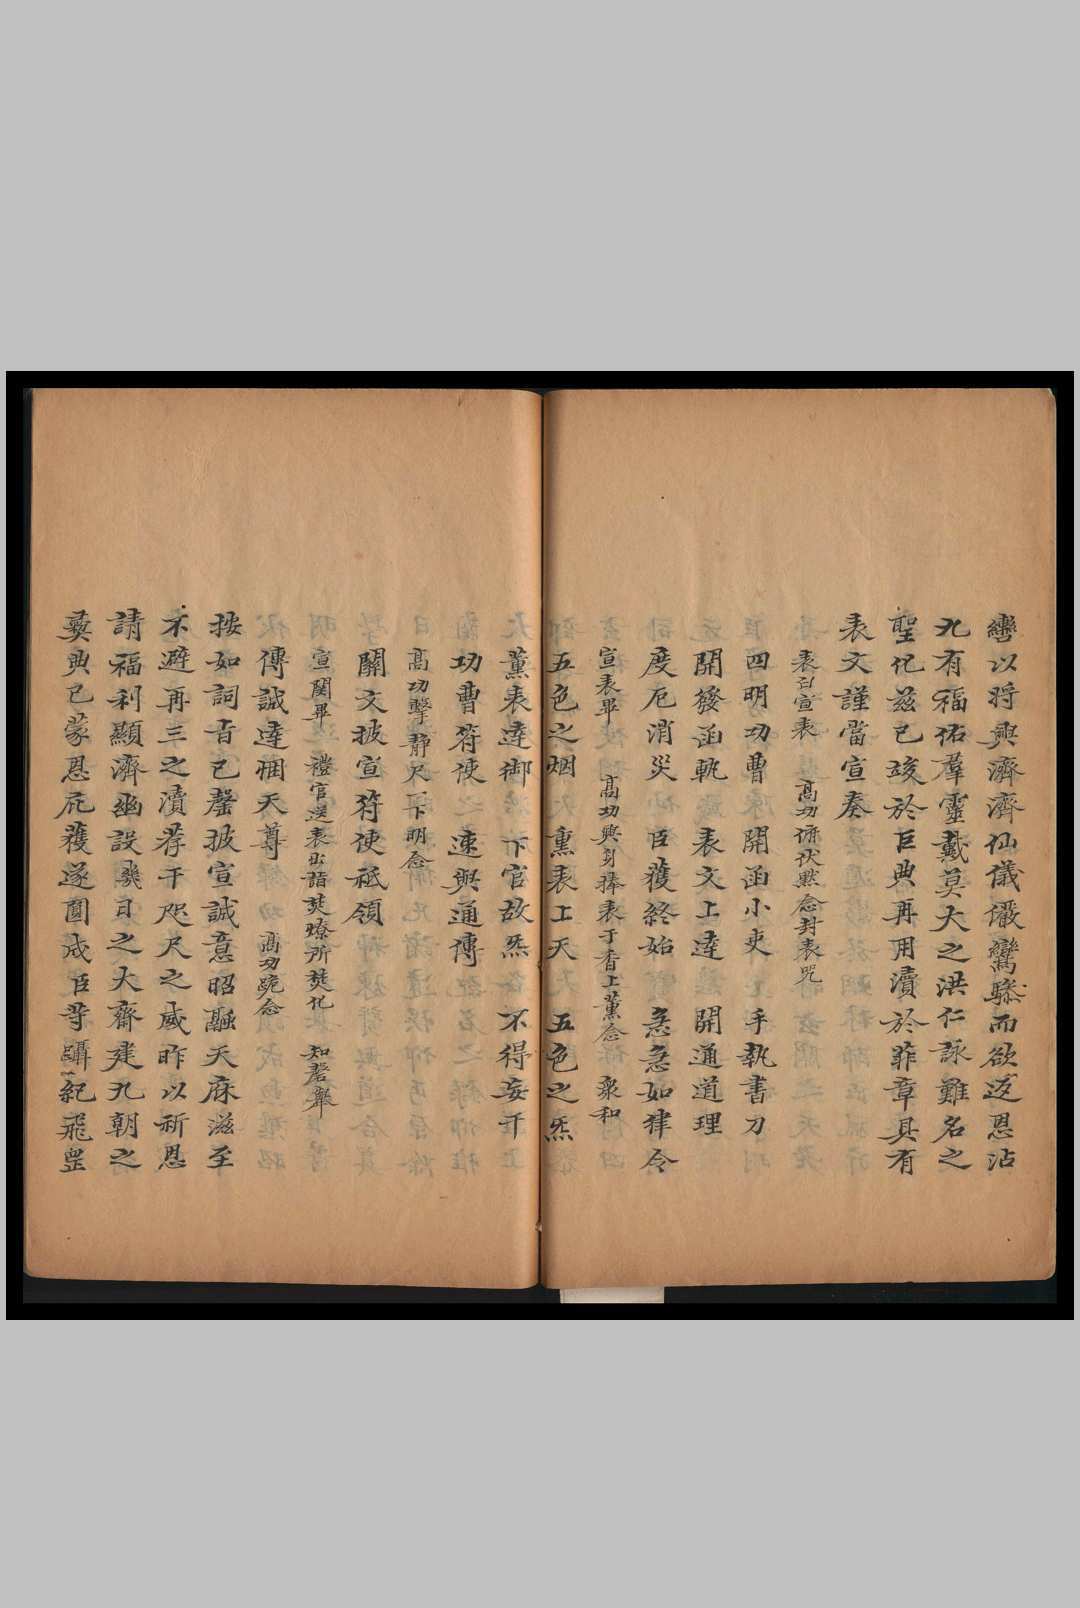 鸞以將興濟濟仙儀儼鸞驂而欲返恩沾
九有福佑羣靈戴莫大之洪仁詠難名之
聖化茲已竣於巨典再用瀆於菲章具有
表文謹當宣奏
表白宣表 高功俯伏黙念封表咒
四明功曹 開函小吏 手執書刀
開發函軌 表文上達 開通道理
度厄消災 臣獲終始 急急如律令
宣表畢 高功興身捧表于香上薰念 衆和
五色之烟 熏表上天 五色之炁
薰表達御 下官故炁 不得妄干
功曹符使 速與通傳
高功擊静尺一下明念
關文披宣符使祗領
宣關畢 禮官送表出詣焚燎所焚化 知磬舉
傳誠達悃天尊 高功跪念
按如詞旨已罄披宣誠意昭融天庥滋至
不避再三之瀆荐干咫尺之威昨以祈恩
請福利顯濟幽設幾日之大齋建九朝之
彝典已蒙恩庇獲遂圓成臣等躡紀飛罡